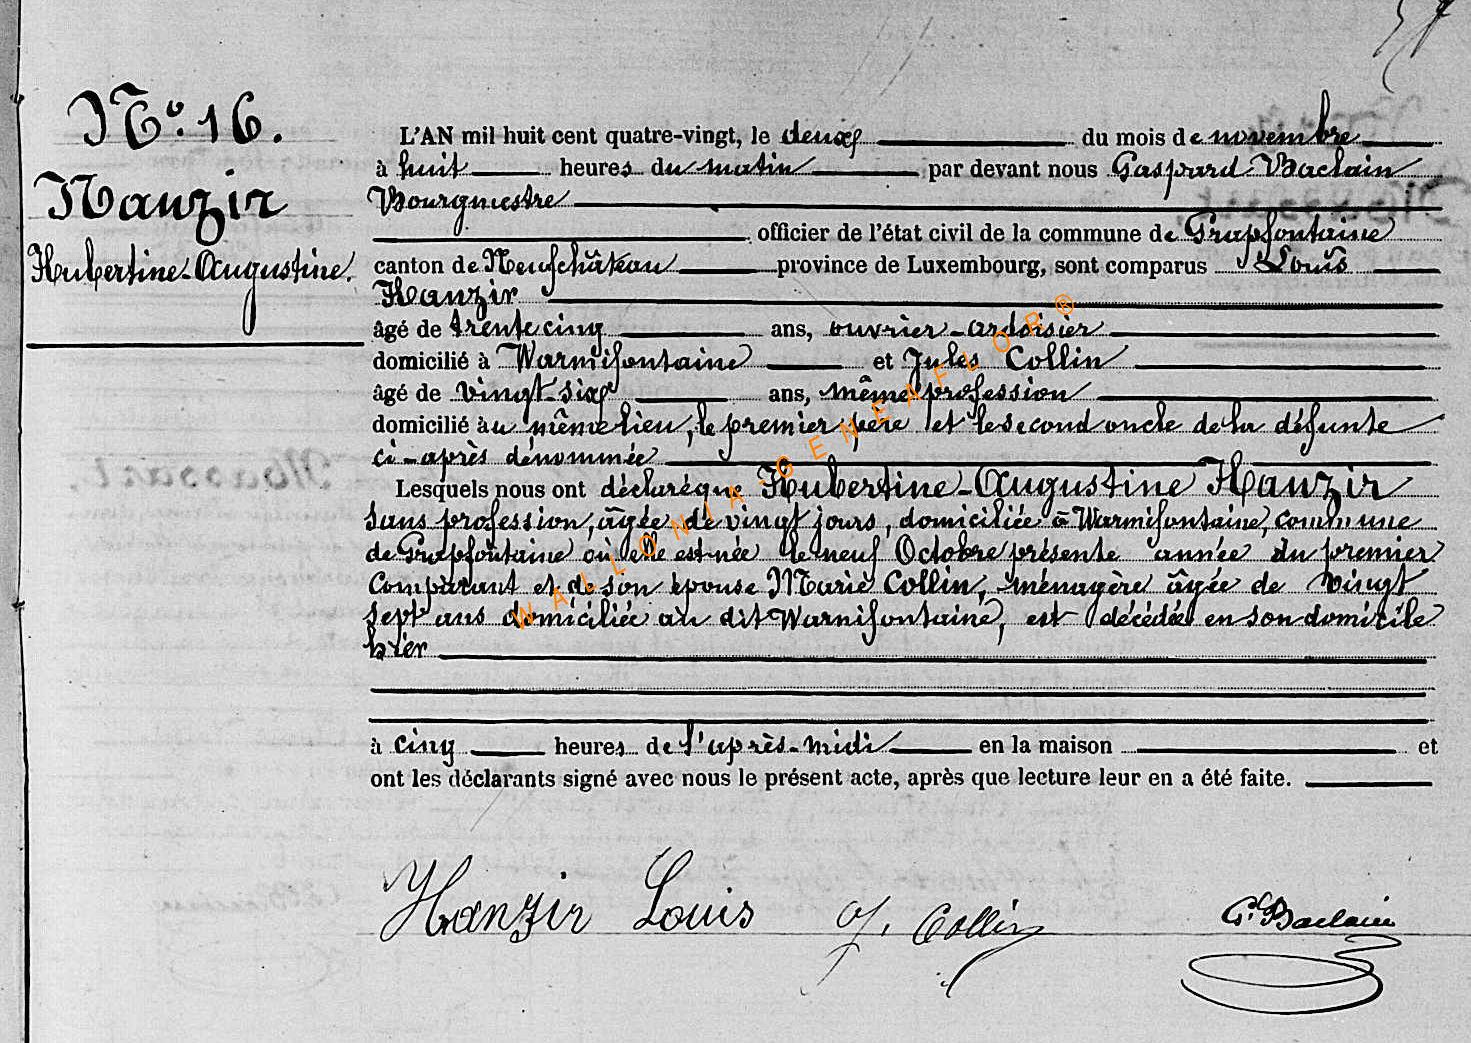 N° 16.
Hanzir
Hubertine-Augustine.
L'AN mil huit cent quatre-vingt, le deux du mois de novembre
à huit heures du matin par devant nous Gaspard Baclain
Bourgmestre
officier de l'état civil de la commune de Grapfontaine
canton de Neufchâteau province de Luxembourg, sont comparus Louis
Hanzir
âgé de trente cinq ans, ouvrier-ardoisier
domicilié à Warmifontaine et Jules Collin
âgé de vingt-six ans, même profession
domicilié au même lieu, le premier père et le second oncle de la défunte
ci-après dénommée
Lesquels nous ont déclaré que Hubertine-Augustine Hanzir
sans profession, âgée de vingt jours, domiciliée à Warmifontaine, commune
de Grapfontaine où elle est née le neuf Octobre présente année du premier
Comparant et de son épouse Marie Collin, ménagère âgée de vingt
sept ans domiciliée au dit Warmifontaine, est décédée en son domicile
hier
à cinq heures de l'après-midi en la maison et
ont les déclarants signé avec nous le présent acte, après que lecture leur en a été faite.
Hanzir Louis J. Collin G. Baclain
WALLONIA-GENEAFLOR®